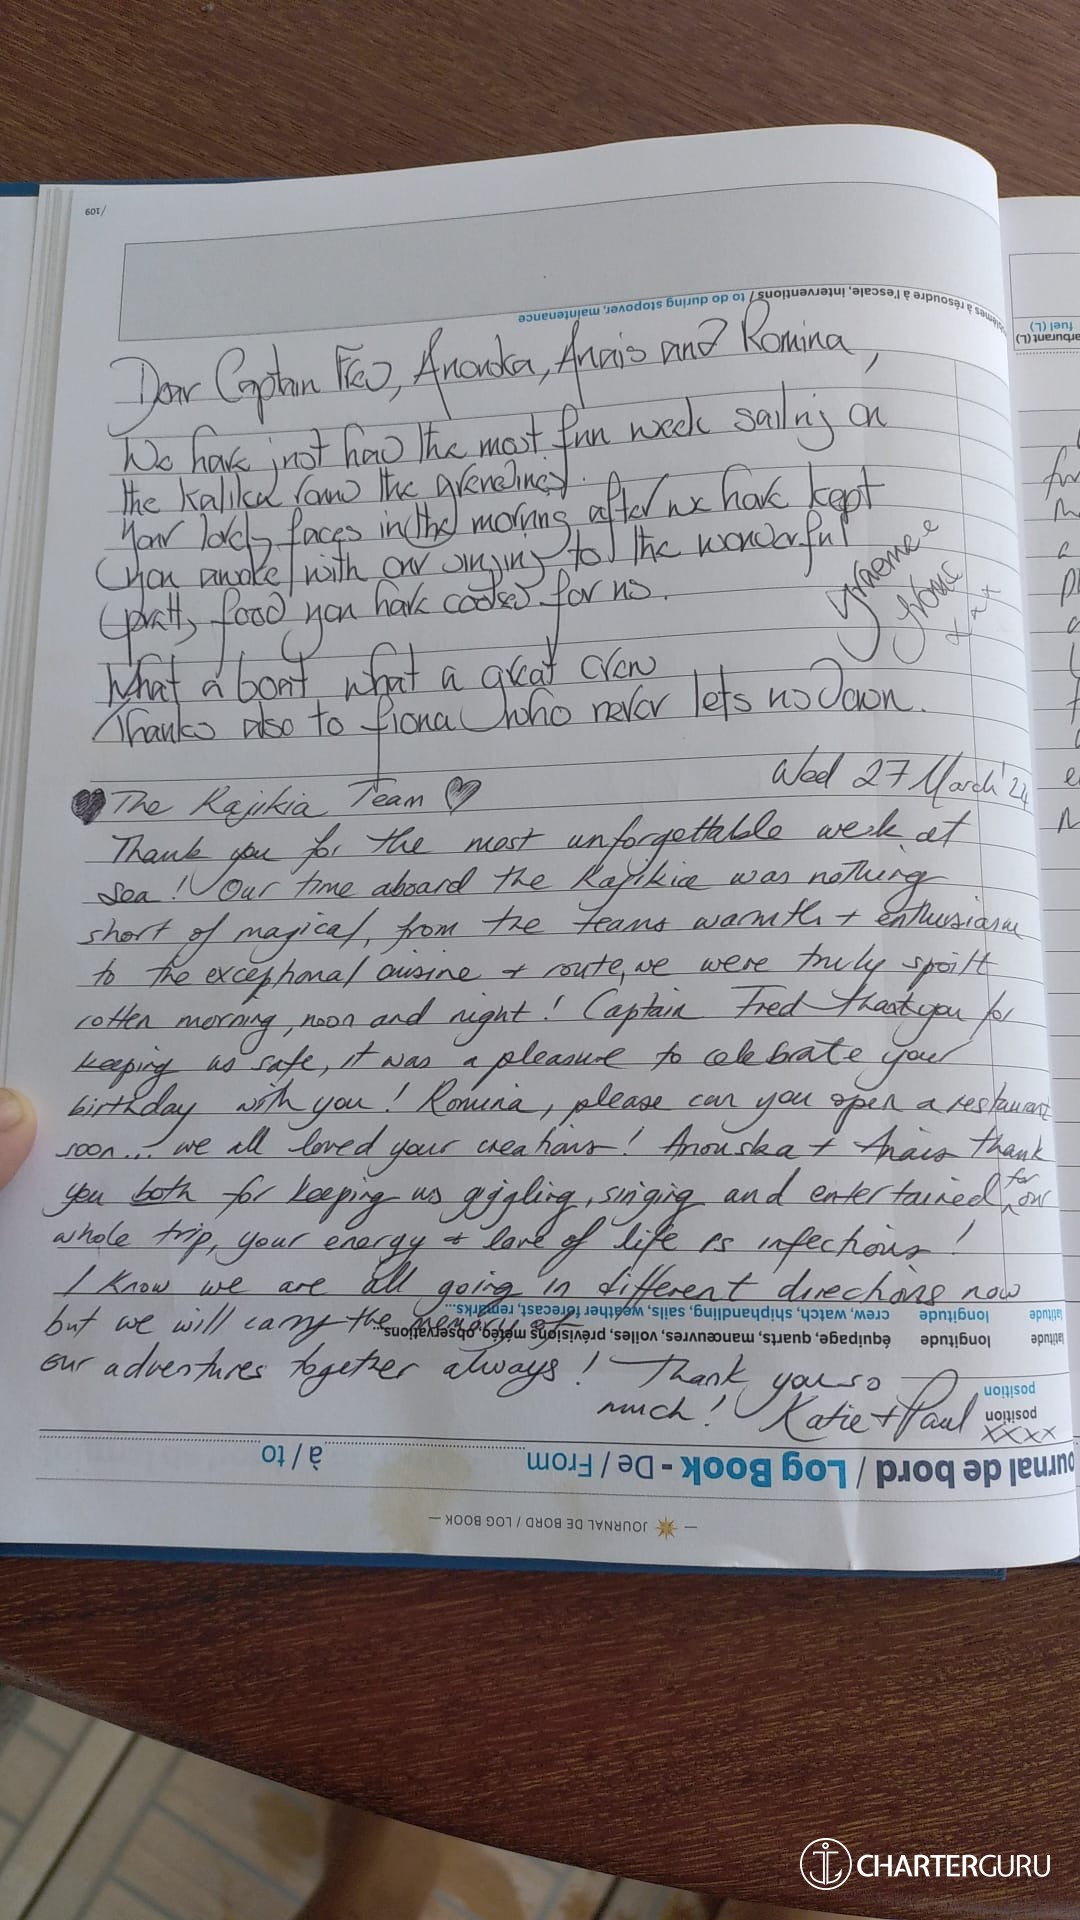 Dear Captain Fred, Anouska, Anais and Romina,
We have just had the most fun week sailing on
the Kalikia round the grenadines.
Your lovely faces in the morning after we have kept
you awake with our singing to the wonderful
(pretty food you have cooked for us.
Graeme e
xxx
What a boat what a great crew
Thanks also to fiona who never lets us Down.
Wed 27 March '24
The Kajikia Team
Thank you for the most unforgettable week at
sea! Our time aboard the Kajikia was nothing
short of magical, from the teams warmth + enthusiasm
to the exceptional cuisine + route, we were truly spoilt
rotten morning, noon and night! Captain Fred thank you for
keeping us safe, it was a pleasure to celebrate your
birthday with you! Romina, please can you open a restaurant
soon... we all loved your creations! Anouska + Anais thank
you both for keeping us giggling, singing and entertained for our
whole trip, your energy + love of life is infectious!
I know we are all going in different directions now
but we will carry the memory of
our adventures together always! Thank you so
much! Katie + Paul
xxxx
/109
problèmes à résoudre à l'escale, interventions / to do during stopover, maintenance
carburant (L)
fuel (L)
latitude longitude crew, watch, shiphandling, sails, weather forecast, remarks...
latitude longitude équipage, quarts, manœuvres, voiles, prévisions météo, observations...
position
position
Journal de bord / Log Book - De / From à / to
— JOURNAL DE BORD / LOG BOOK —
CHARTERGURU